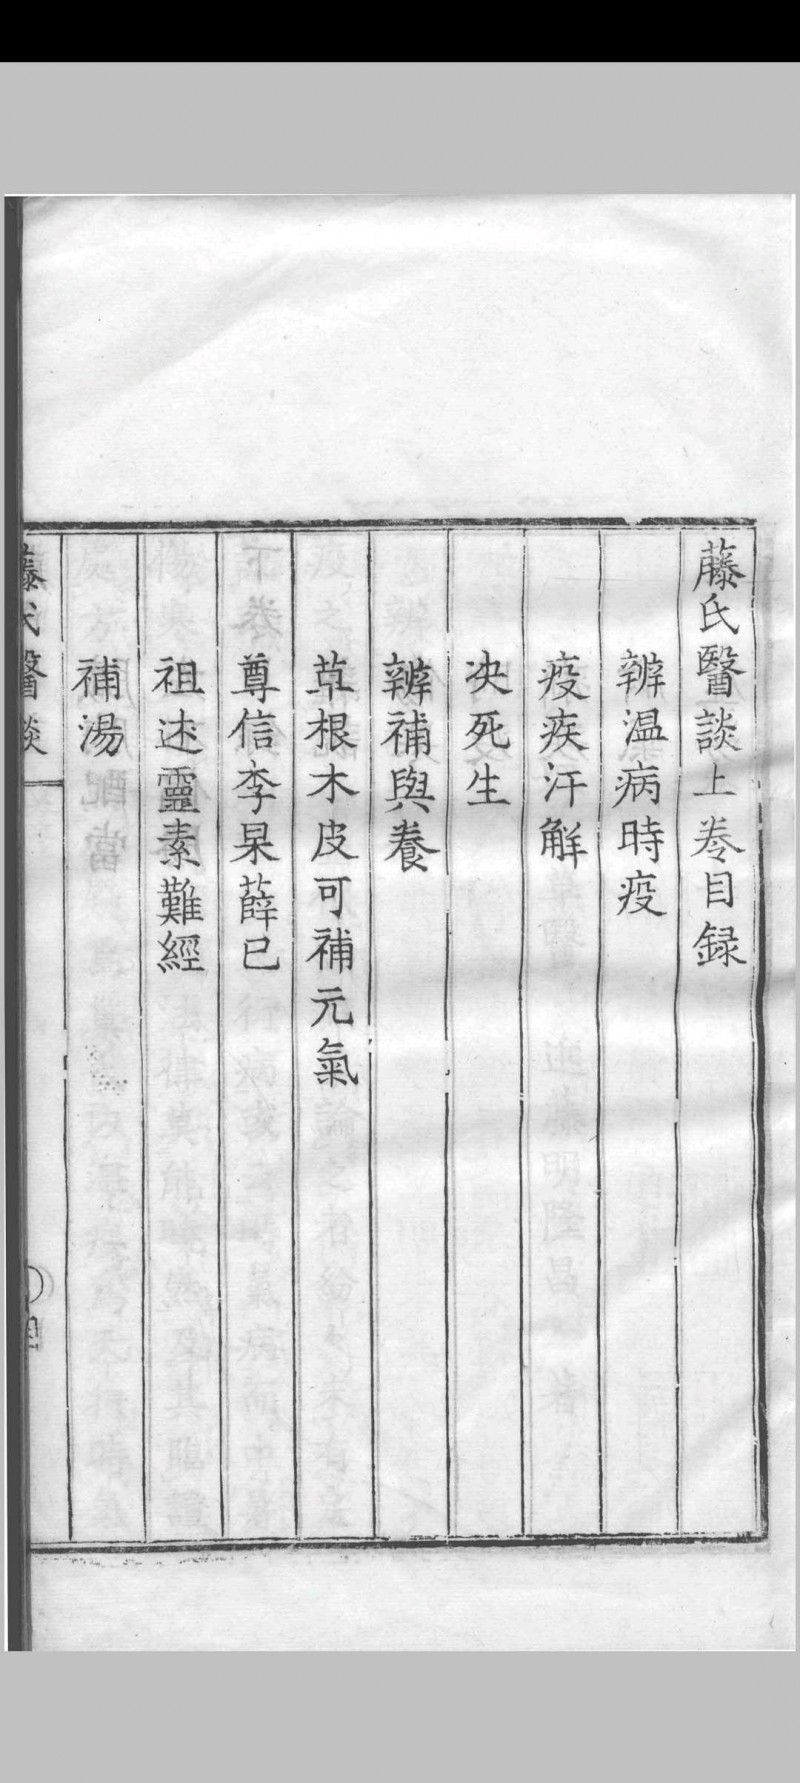 藤氏醫談上卷目録
辨温病時疫
疫疾汗解
决死生
辨補與養
草根木皮可補元氣
尊信李杲薛已
祖述靈素難經
補湯
藤氏醫談